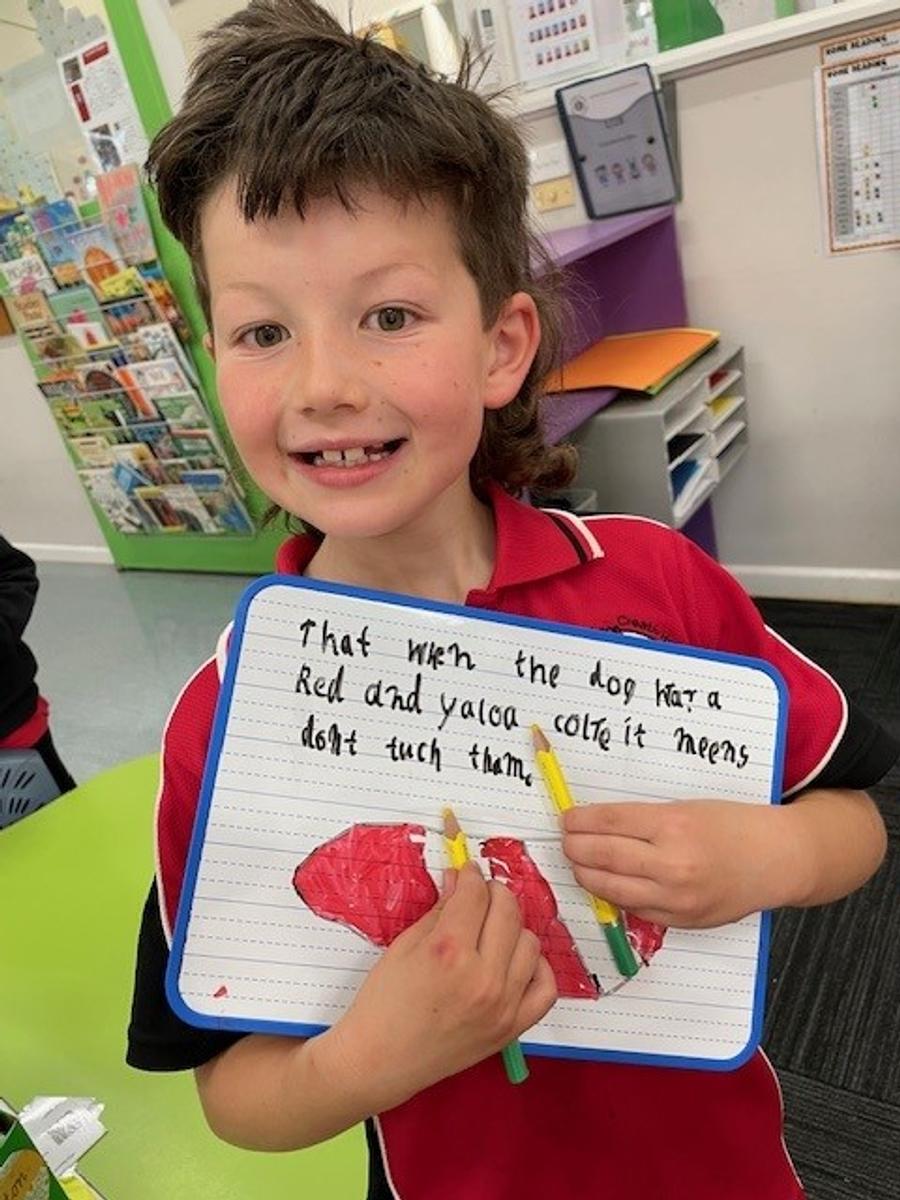 HOME READING
HOME READING
Creati
That when the dog har a
Red and yaloa colre it meens
dont tuch tham.